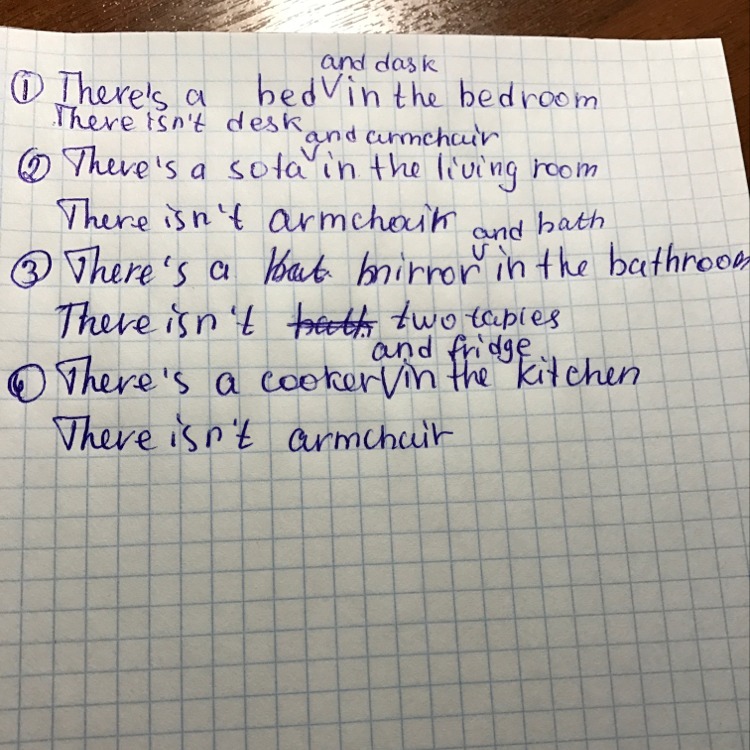 and dask
① There's a bed V in the bedroom
There isn't desk
and armchair
② There's a sofa V in the living room
There isn't armchair
and bath
③ There's a mirror V in the bathroom
There isn't bath two tables
and fridge
④ There's a cooker V in the kitchen
There isn't armchair